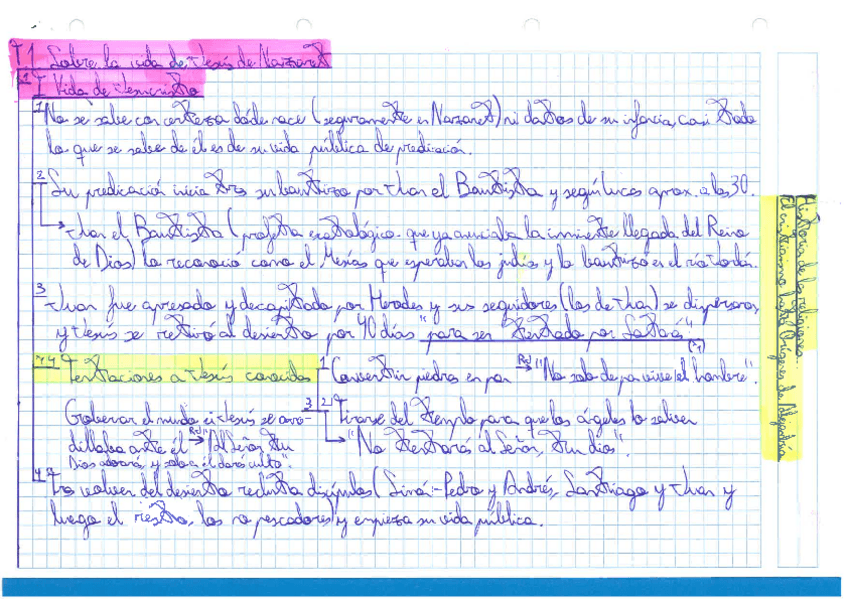 T1 Sobre la vida de Jesús de Nazaret
I Vida de Jesucristo
1 No se sabe con certeza dóde nace (seguramente en Nazaret) ni datos de su infancia, casi todo
lo que se sabe de él es de su vida pública de predicación.
2 Su predicación inicia tras su bautizo por Juan el Bautista y según Lucas aprox. a los 30.
Juan el Bautista (profeta escatológico que ya anunciaba la inminente llegada del Reino
de Dios) lo reconoció como el Mesías que esperaban los judíos y lo bautizó en el río Jordán.
3 Juan fue apresado y decapitado por Herodes y sus seguidores (los de Juan) se dispersaron
y Jesús se retiró al desierto por 40 días "para ser tentado por Satán"
Tentaciones a Jesús conocidas 1 Convertir piedras en pan Rd "No solo de pan vive el hombre".
Gobernar el mundo si Jesús se arro- 3 2 Tirarse del templo para que los ángeles lo salven
dillaba ante él Rd "Al Señor, tu "No tentarás al Señor, tu dios".
Dios adorarás, y solo a él darás culto".
4 Tras volver del desierto recluta discípulos (Simón-Pedro y Andrés, Santiago y Juan y
luego el resto, los no pescadores) y empieza su vida pública.
Historia de las religiones.
El cristianismo hasta Orígenes de Alejandría